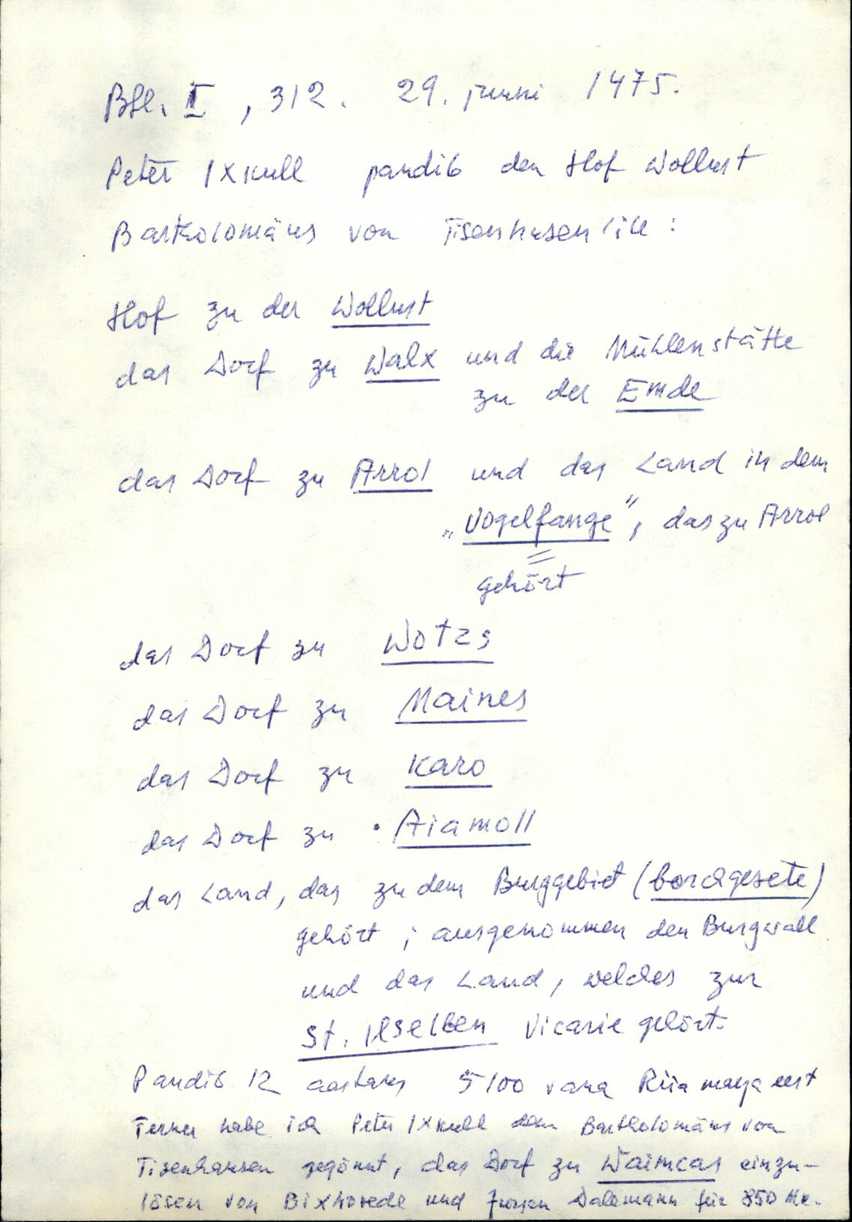 Bfl. I, 312. 29. juuni 1475.
Peter Ixkull pandib den Hof Wollust
Bartholomäus von Tisenhusenile:
Hof zu der Wollust
das Dorf zu Walx und die Mühlenstätte
zu der Emde
das Dorf zu Arrol und das Land in dem
„Vogelfange", das zu Arrol
gehört
das Dorf zu Wotzs
das Dorf zu Maines
das Dorf zu Karo
das Dorf zu Aiamoll
das Land, das zu dem Burggebiet (borchgesete)
gehört; ausgenommen den Burgwall
und das Land, welches zur
St. Ilseben Vicarie gehört.
Pandib 12 aastaks 5100 vana Riia marga eest
Ferner habe ich Peter Ixkull dem Bartholomäus von
Tisenhausen gegönnt, das Dorf zu Waimcas einzu-
lösen von Bixhövede und Jurgen Dalemann für 850 Mk.